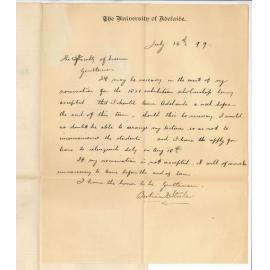 The University of Adelaide.
July 14th 99
The Faculty of Science
Gentlemen
It may be necessary in the event of my
nomination for the 1851 exhibition scholarship being
accepted that I should leave Adelaide a week before
the end of this term, should this be necessary I would
no doubt be able to arrange my lectures so as not to
inconvenience the students and I have the apply for
leave to relinquish duty on Aug 10th
If my nomination is not accepted, it will of course be
unnecessary to leave before the end of term
I have the honor to be, Gentlemen,